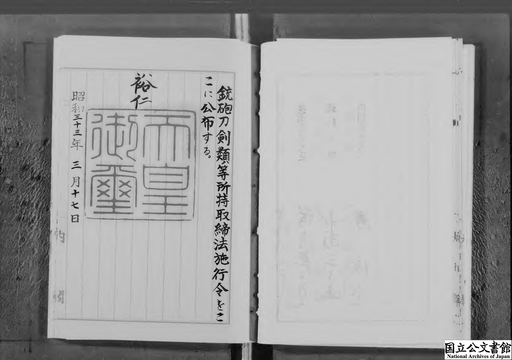 銃砲刀剣類等所持取締法施行令をこ
こに公布する。
裕仁
天皇御璽
昭和三十三年三月十七日
内閣
国立公文書館
National Archives of Japan